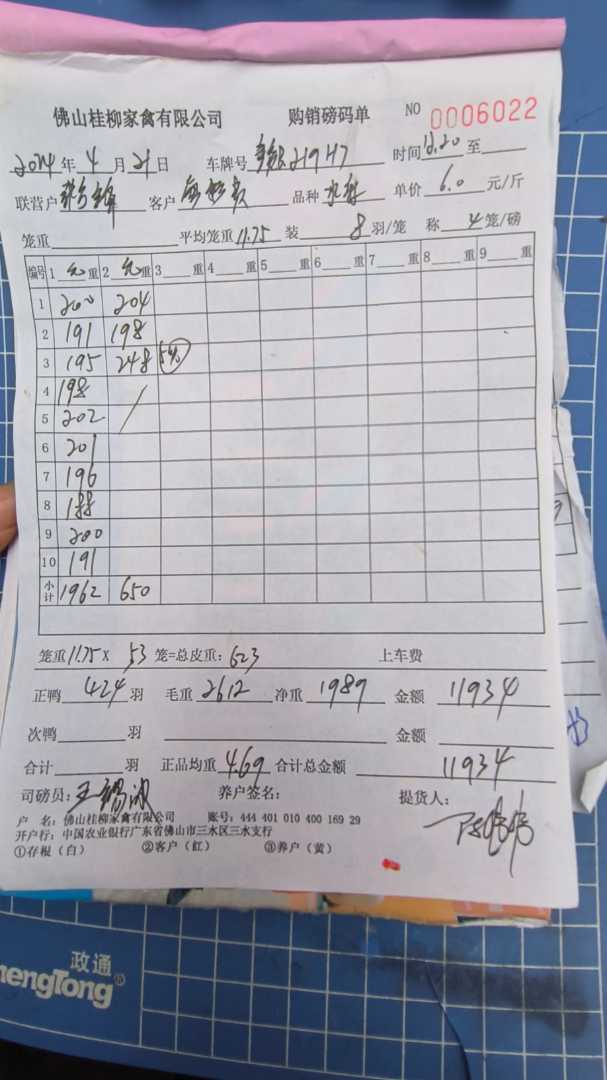 佛山桂柳家禽有限公司 购销磅码单 NO 0006022
2024年4月21日 车牌号 219H7 时间12.20至
联营户 客户 品种 单价6.0元/斤
笼重 平均笼重11.75 装8羽/笼 称4笼/磅
编号 1 重 2 重 3 重 4 重 5 重 6 重 7 重 8 重 9 重
1 200 204
2 191 198
3 195 248 5笼
4 198
5 202
6 201
7 196
8 188
9 200
10 191
小计 1962 650
笼重11.75×53笼=总皮重:623 上车费
正鸭424羽 毛重2612 净重1989 金额11934
次鸭 羽 金额
合计 羽 正品均重4.69 合计总金额11934
司磅员: 养户签名: 提货人:
户 名:佛山桂柳家禽有限公司 账号:444 401 010 400 169 29
开户行:中国农业银行广东省佛山市三水区三水支行
①存根(白) ②客户(红) ③养户(黄)
政通
hengTong®